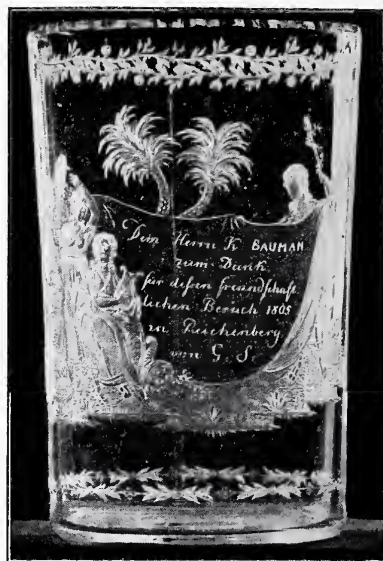 Dem Herrn K BAUMAN
zum Dank
für deſsen freundſchaft
lichen Beſuch 1805
in Reichenberg
von G. S.